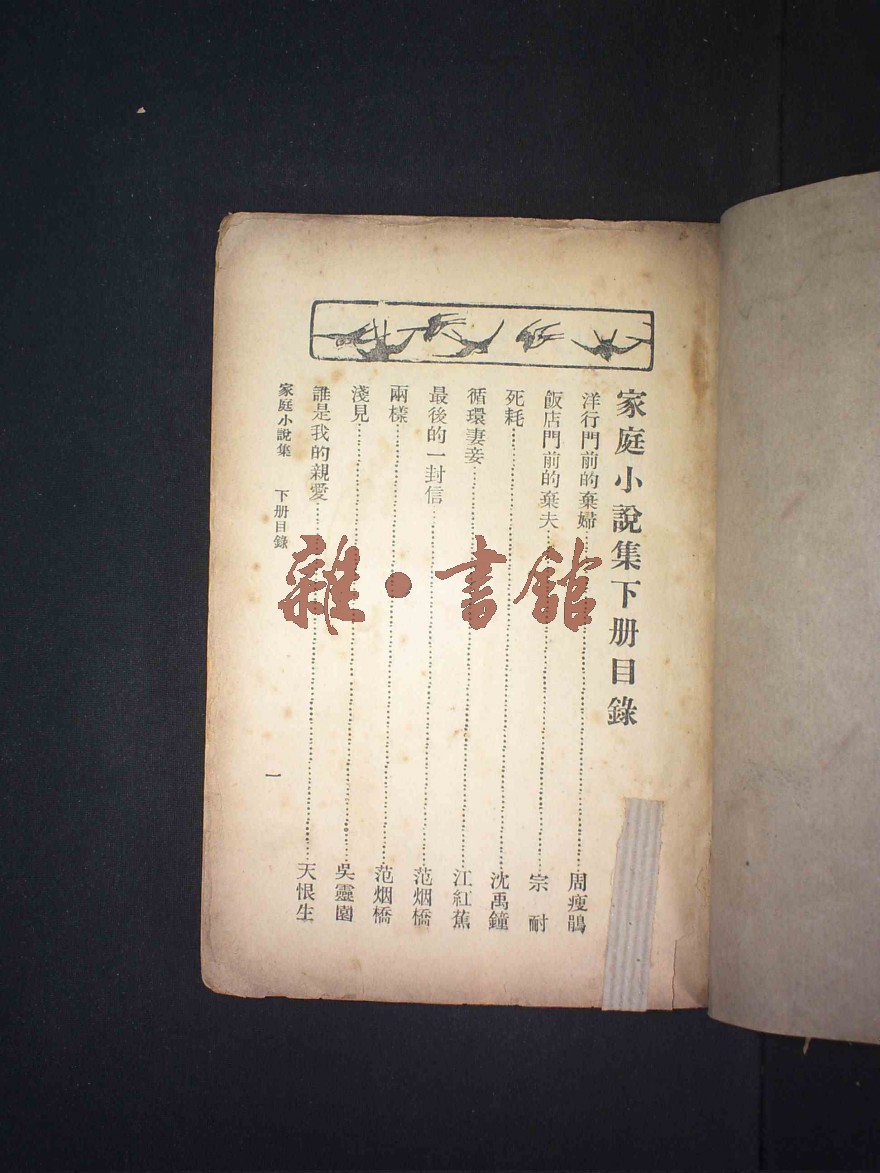 家庭小說集下册目錄
洋行門前的棄婦…………周瘦鵑
飯店門前的棄夫…………宗耐
死耗…………沈禹鐘
循環妻妾…………江紅蕉
最後的一封信…………范烟橋
兩樣…………范烟橋
淺見…………吳靈園
誰是我的親愛…………天恨生
家庭小說集 下册目錄 一
雜·書館